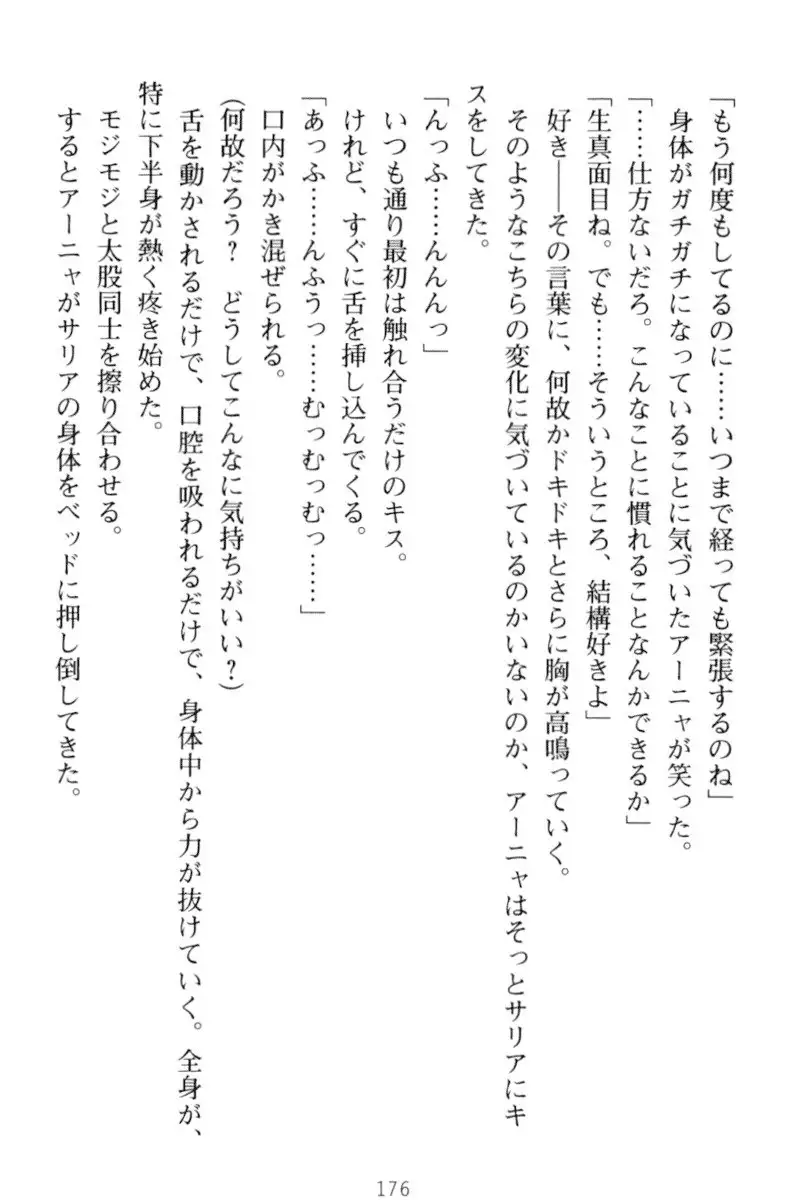 「もう何度もしてるのに……いつまで経っても緊張するのね」
身体がガチガチになっていることに気づいたアーニャが笑った。
「……仕方ないだろ。こんなことに慣れることなんかできるか」
「生真面目ね。でも……そういうところ、結構好きよ」
好き――その言葉に、何故かドキドキとさらに胸が高鳴っていく。
そのようなこちらの変化に気づいているのかいないのか、アーニャはそっとサリアにキ
スをしてきた。
「んっふ……んんんっ」
いつも通り最初は触れ合うだけのキス。
けれど、すぐに舌を挿し込んでくる。
「あっふ……んふうっ……むっむっむっ……」
口内がかき混ぜられる。
(何故だろう？　どうしてこんなに気持ちがいい？)
舌を動かされるだけで、口腔を吸われるだけで、身体中から力が抜けていく。全身が、
特に下半身が熱く疼き始めた。
モジモジと太股同士を擦り合わせる。
するとアーニャがサリアの身体をベッドに押し倒してきた。
176